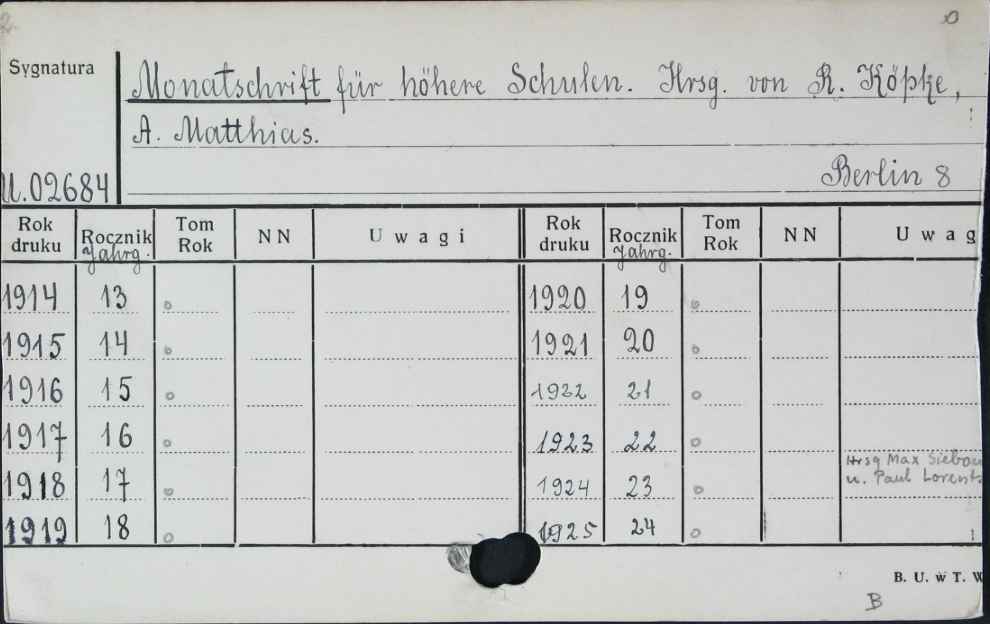 Sygnatura
Monatschrift für höhere Schulen. Hrsg. von R. Köpke,
A. Matthias.
U.02684
Berlin 8
Rok druku Rocznik Jahrg. Tom Rok NN Uwagi Rok druku Rocznik Jahrg. Tom Rok NN Uwag
1914 13 1920 19
1915 14 1921 20
1916 15 1922 21
1917 16 1923 22
Hrsg Max Siebou
1918 17 1924 23 u. Paul Lorentz
1919 18 1925 24
B. U. w T. W
B